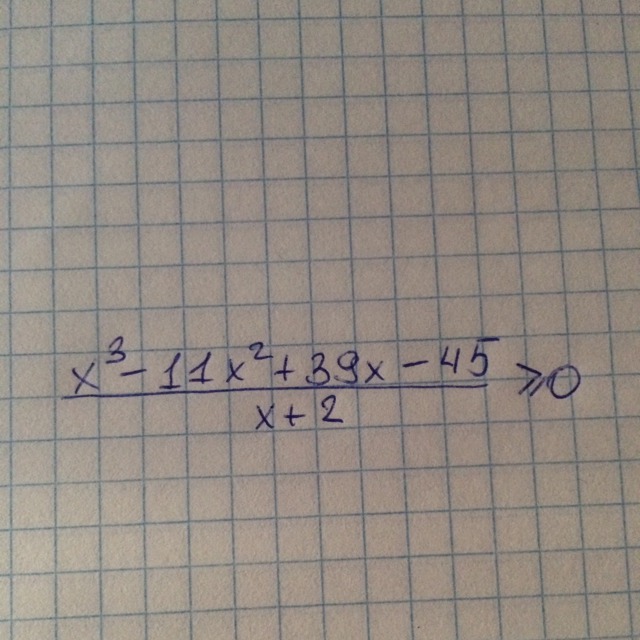 x³ - 11x² + 39x - 45
x + 2
⩾ 0